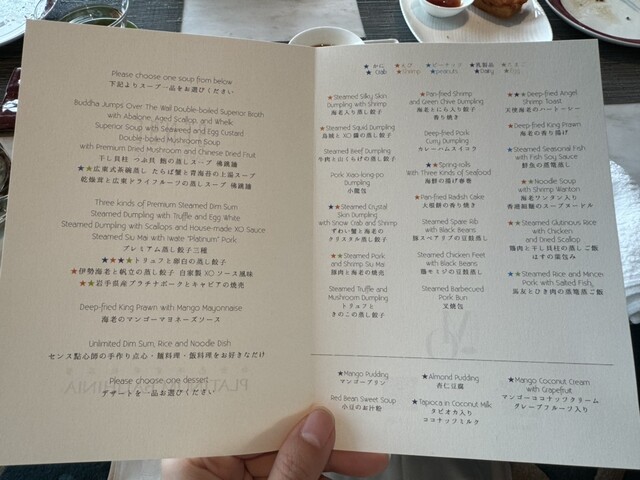 Please choose one soup from below
下記よりスープ一品をお選びください
Buddha Jumps Over The Wall Double-boiled Superior Broth
with Abalone, Aged Scallop, and Whelk
Superior Soup with Seaweed and Egg Custard
Double-boiled Mushroom Soup
with Premium Dried Mushroom and Chinese Dried Fruit
干し貝柱 つぶ貝 鮑の蒸しスープ 佛跳牆
★★広東式茶碗蒸し たらば蟹と青海苔の上湯スープ
乾燥茸と広東ドライフルーツの蒸しスープ 佛跳牆
Three kinds of Premium Steamed Dim Sum
Steamed Dumpling with Truffle and Egg White
Steamed Dumpling with Scallops and House-made XO Sauce
Steamed Siu Mai with Iwate "Platinum" Pork
プレミアム蒸し餃子三種
★★★★トリュフと卵白の蒸し餃子
★伊勢海老と帆立の蒸し餃子 自家製XOソース風味
★★岩手県産プラチナポークとキャビアの焼売
Deep-fried King Prawn with Mango Mayonnaise
海老のマンゴーマヨネーズソース
Unlimited Dim Sum, Rice and Noodle Dish
センス點心師の手作り点心・麺料理・飯料理をお好きなだけ
Please choose one dessert
デザートを一品お選びください
★かに ★えび ★ピーナッツ ★乳製品 ★たまご
★Crab ★Shrimp ★peanuts ★Dairy ★Egg
★Steamed Silky Skin
Dumpling with Shrimp
海老入り蒸し餃子
★Steamed Squid Dumpling
烏賊とXO醤の蒸し餃子
Steamed Beef Dumpling
牛肉と山くらげの蒸し餃子
Pork Xiao-long-po
Dumpling
小籠包
★★Steamed Crystal
Skin Dumpling
with Snow Crab and Shrimp
ずわい蟹と海老の
クリスタル蒸し餃子
★★Steamed Pork
and Shrimp Siu Mai
豚肉と海老の焼売
Steamed Truffle and
Mushroom Dumpling
トリュフと
きのこの蒸し餃子
★Pan-fried Shrimp
and Green Chive Dumpling
海老とにら入り餃子
香り焼き
Deep-fried Pork
Curry Dumpling
カレーハムスイコウ
★★Spring-rolls
With Three Kinds of Seafood
海鮮の揚げ春巻
★Pan-fried Radish Cake
大根餅の香り焼き
Steamed Spare Rib
with Black Beans
豚スペアリブの豆鼓蒸し
Steamed Chicken Feet
with Black Beans
鶏モミジの豆鼓蒸し
Steamed Barbecued
Pork Bun
叉焼包
★★★Deep-fried Angel
Shrimp Toast
天使海老のハートーシー
★Deep-fried King Prawn
海老の香り揚げ
★Steamed Seasonal Fish
with Fish Soy Sauce
鮮魚の蒸籠蒸し
★Noodle Soup
with Shrimp Wanton
海老ワンタン入り
香港細麺のスープヌードル
★★Steamed Glutinous Rice
with Chicken
and Dried Scallop
鶏肉と干し貝柱の蒸しご飯
はすの葉包み
★★Steamed Rice and Mincer
Pork with Salted Fish,
馬友とひき肉の蒸籠蒸しご飯
★Mango Pudding
マンゴープリン
Red Bean Sweet Soup
小豆のお汁粉
★Almond Pudding
杏仁豆腐
★Tapioca in Coconut Milk
タピオカ入り
ココナッツミルク
★Mango Coconut Cream
with Grapefruit
マンゴーココナッツクリーム
グレープフルーツ入り